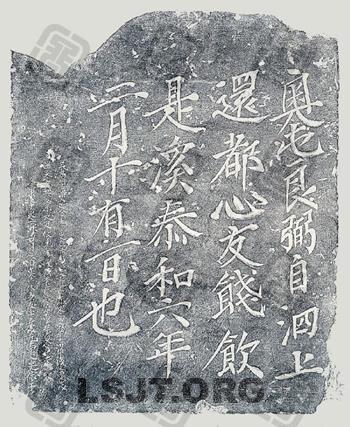 奥屯良弼自泗上
還都心友餞飲
是溪泰和六年
二月十有一日也
LSJT.ORG